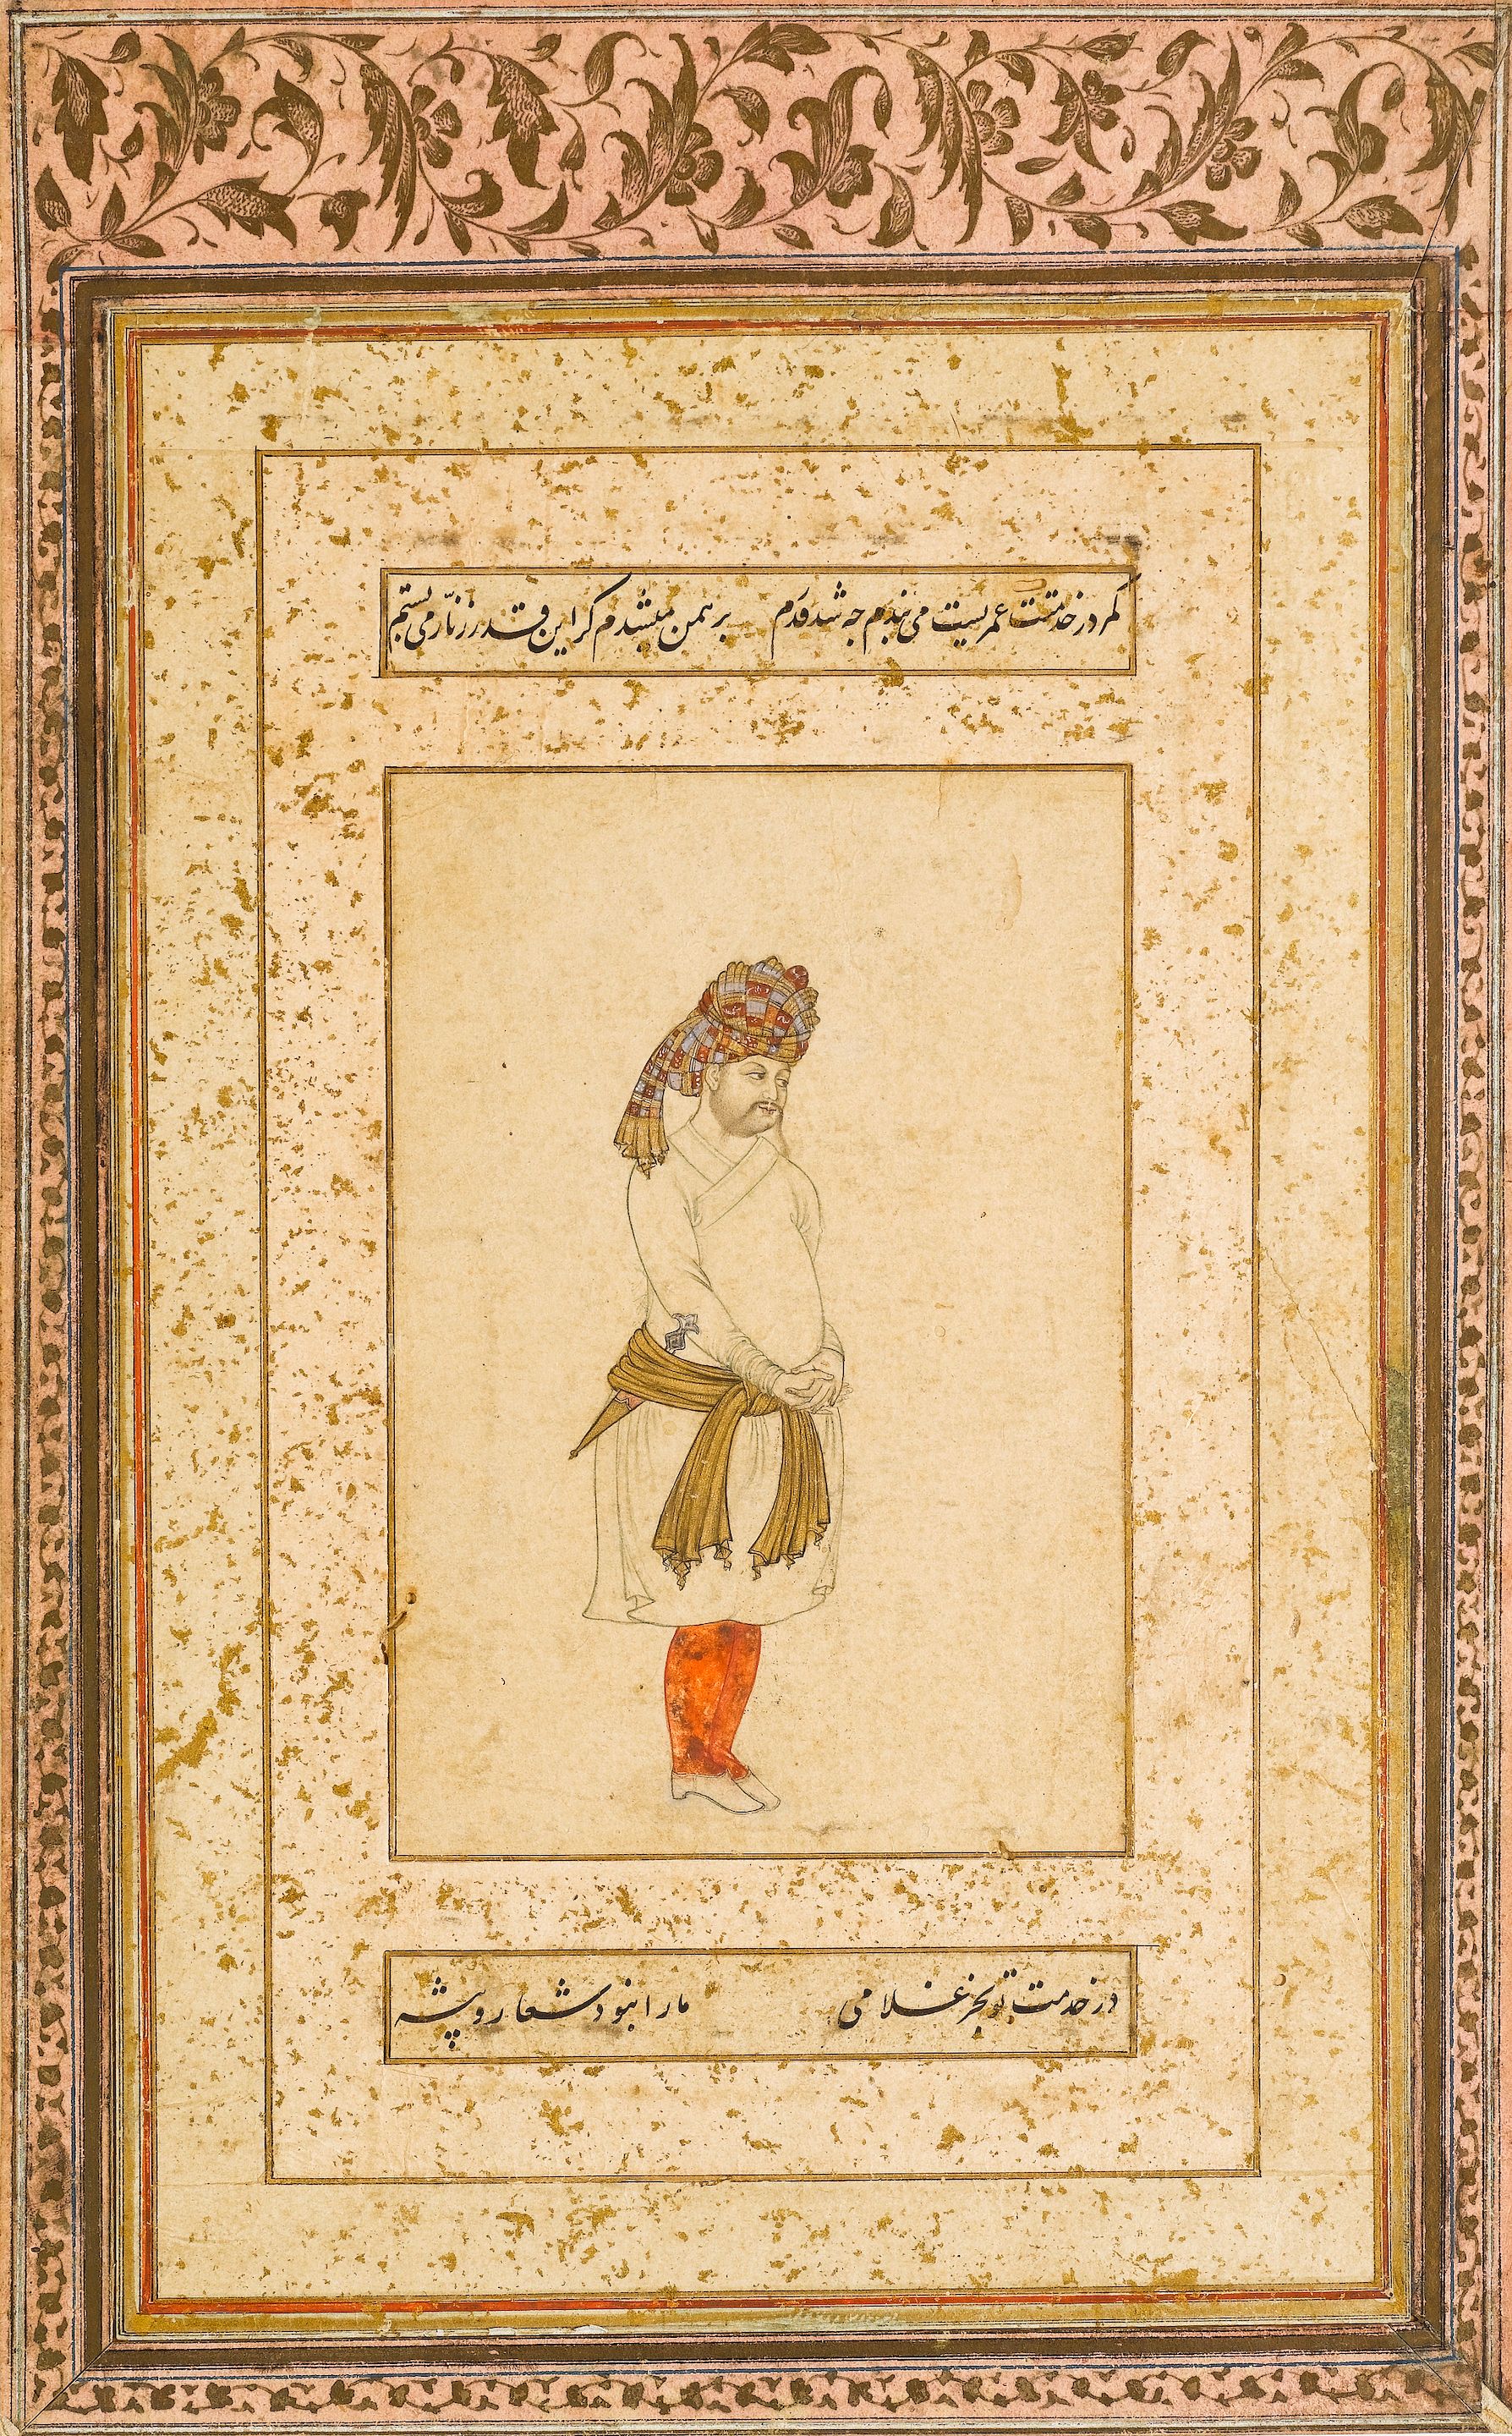 کمر در خدمتت عمریست می بندم چه شد قدرم برهمن میشدم گر این قدر زنار می بستم
در خدمت تو بجز غلامی ما را نبود شعار و پیشه